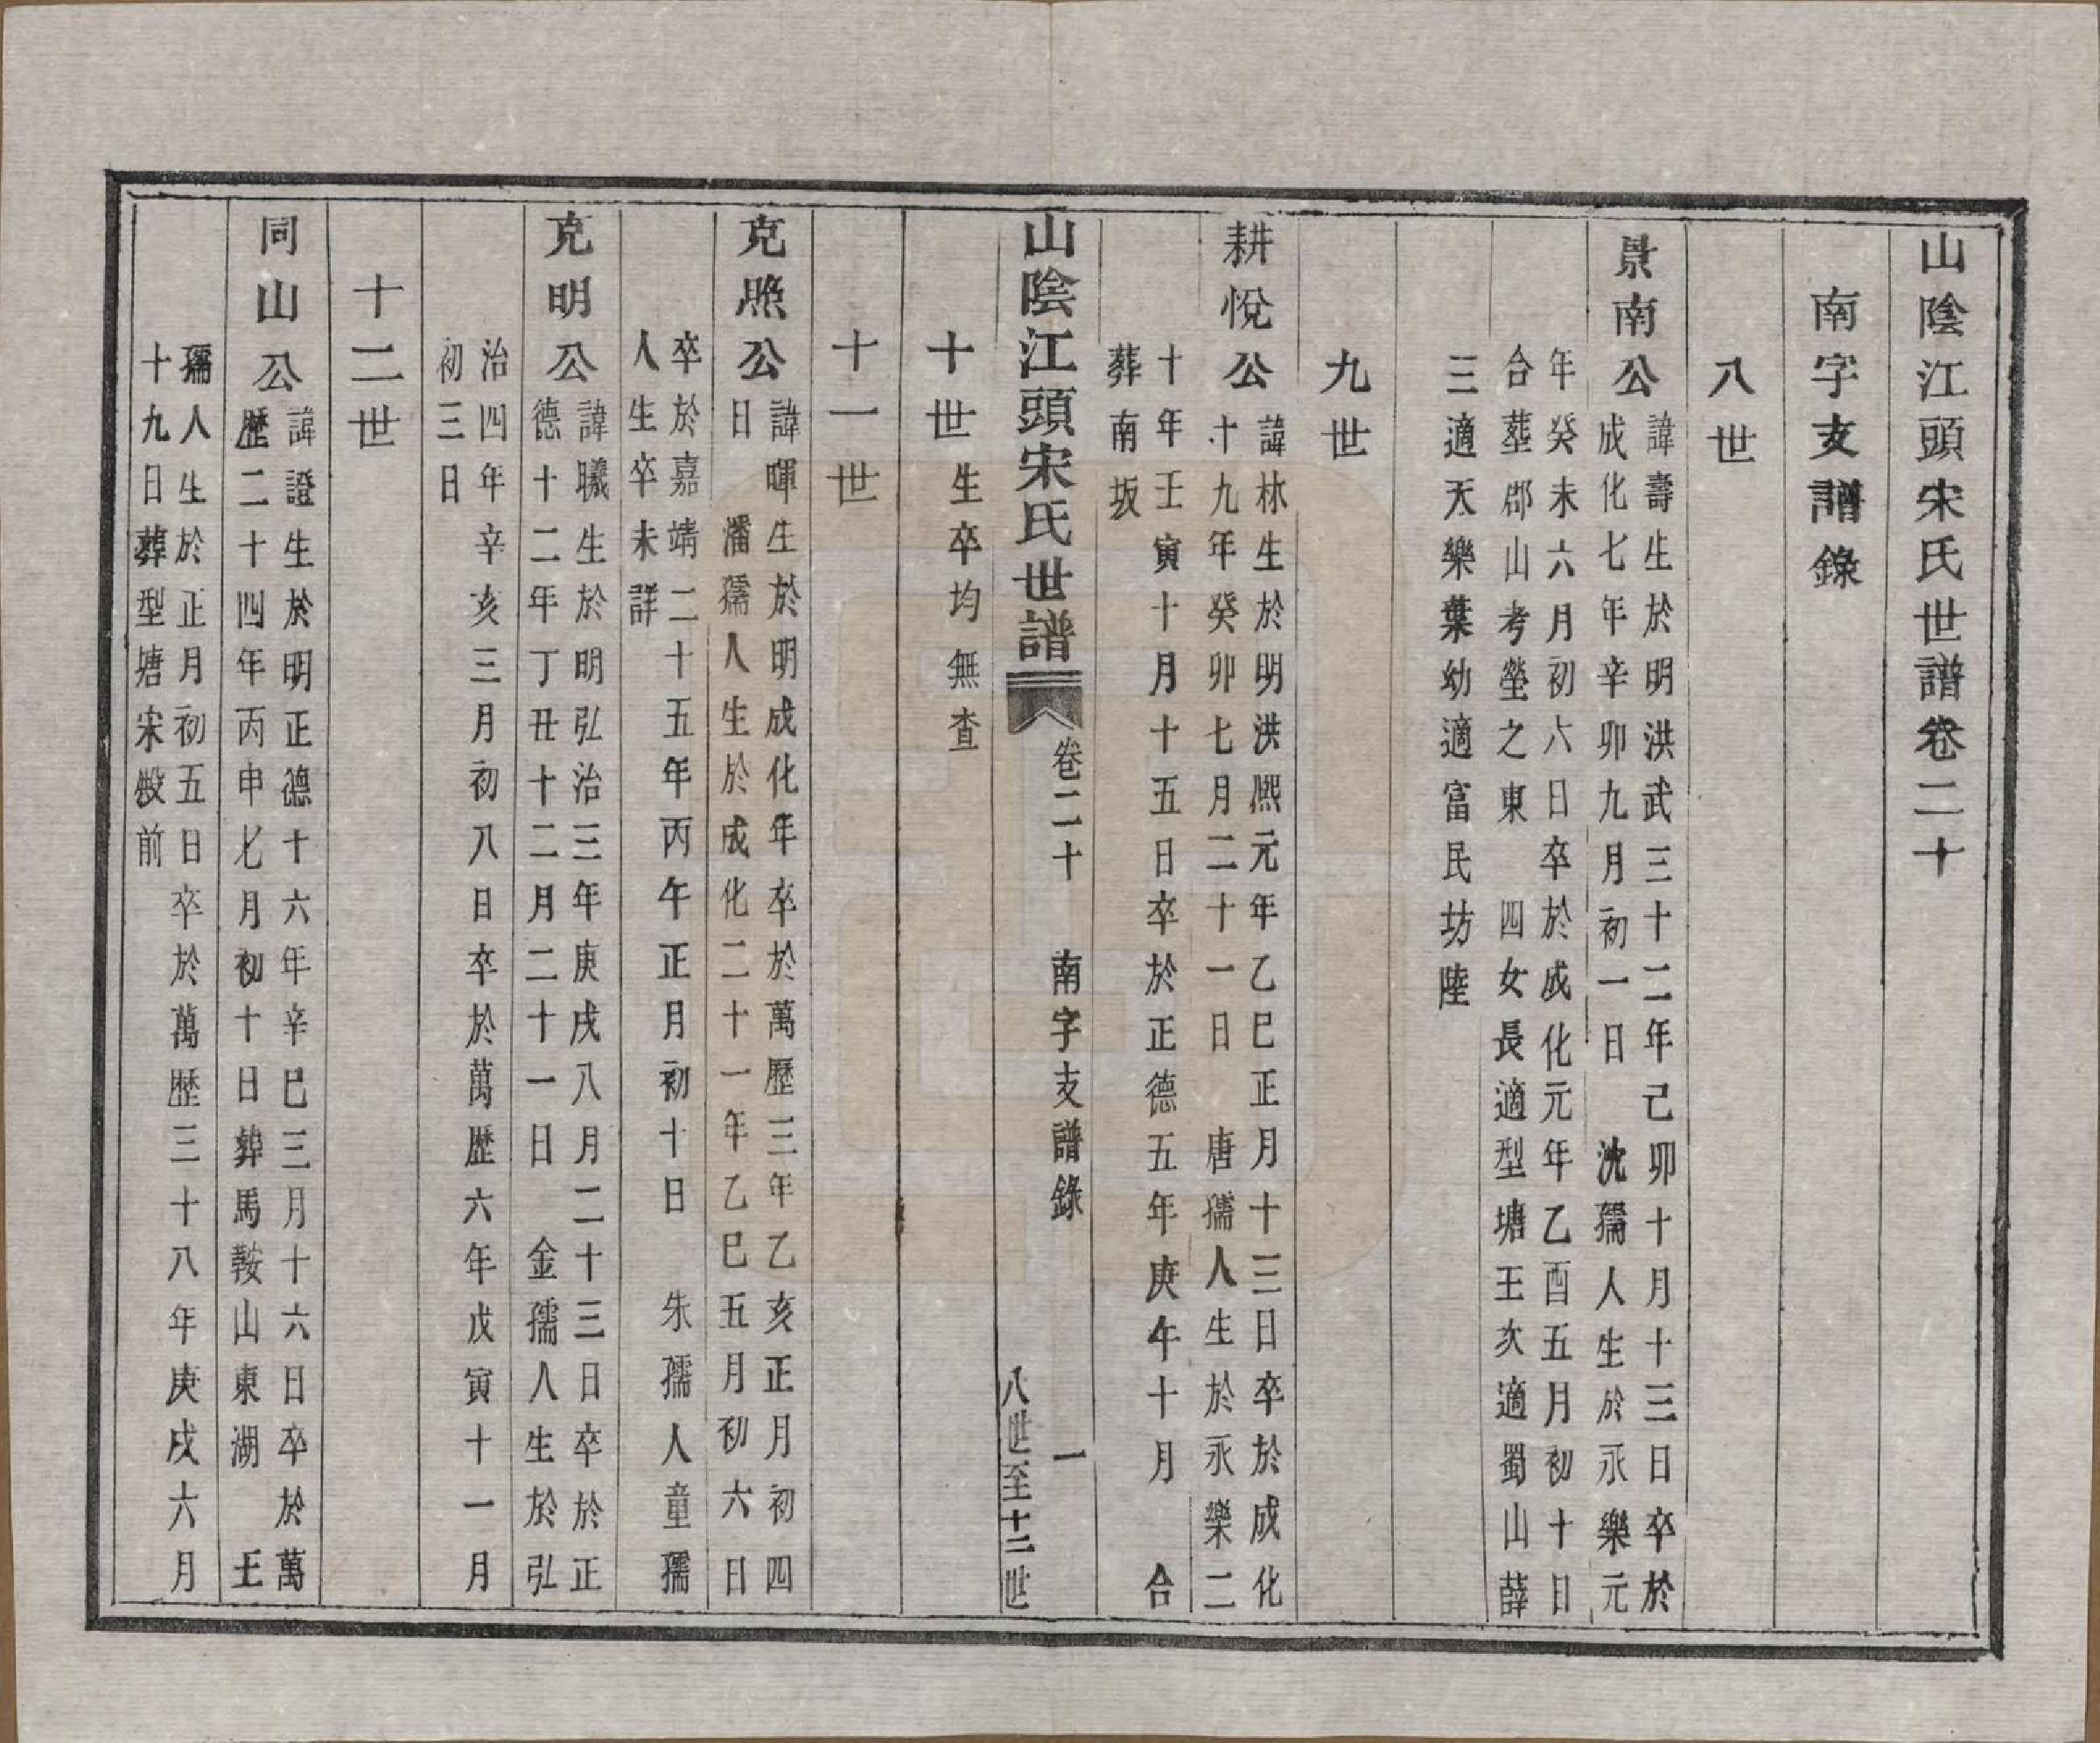 山陰江頭宋氏世譜卷二十
南字支譜錄
八世
景南公
諱壽生於明洪武三十二年己卯十月十三日卒於
成化七年辛卯九月初一日 沈孺人生於永樂元
年癸未六月初六日卒於成化元年乙酉五月初十日
合葬郡山考塋之東 四女長適型塘王次適蜀山薛
三適天樂葉幼適富民坊陸
九世
耕悅公
諱林生於明洪熙元年乙巳正月十三日卒於成化
十九年癸卯七月二十一日 唐孺人生於永樂二
十年壬寅十月十五日卒於正德五年庚午十月 合
葬南坂
山陰江頭宋氏世譜
卷二十 南字支譜錄 一
八世至十二世
十世
生卒均無查
十一世
克照公
諱暉生於明成化年卒於萬歷三年乙亥正月初四
日 潘孺人生於成化二十一年乙巳五月初六日
卒於嘉靖二十五年丙午正月初十日 朱孺人童孺
人生卒未詳
克明公
諱曦生於明弘治三年庚戌八月二十三日卒於正
德十二年丁丑十二月二十一日 金孺人生於弘
治四年辛亥三月初八日卒於萬歷六年戊寅十一月
初三日
十二世
同山公
諱證生於明正德十六年辛巳三月十六日卒於萬
歷二十四年丙申七月初十日葬馬鞍山東湖 王
孺人生於正月初五日卒於萬歷三十八年庚戌六月
十九日葬型塘宋殿前